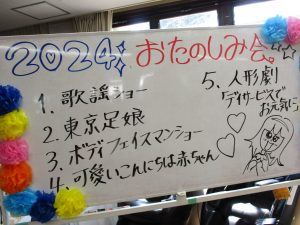 2024: おたのしみ会。☆☆
1. 歌謡ショー
2. 東京足娘
3. ボディフェイスマンショー
4. 可愛いこんにちは赤ちゃん
5. 人形劇
「デイサービスで
お元気に